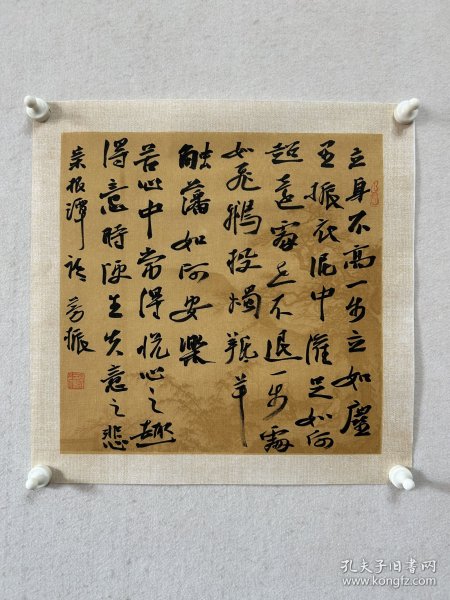 立身不高一步立如塵
里振衣泥中濯足如何
超達處世不退一步處
如飛蛾投燭羝羊
触藩如何安樂
苦心中常得悦心之趣
得意時便生失意之悲
菜根譚語 振
孔夫子旧书网
www.kongfz.com